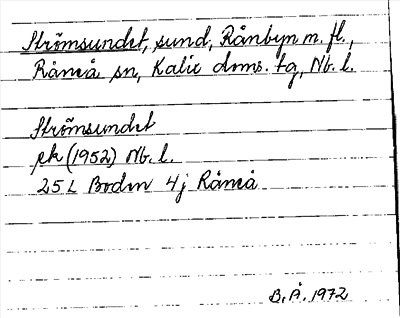 Strömsundet, sund, Rånbyn m. fl.,
Råneå sn, Kalix doms. tg, Nb. l.
Strömsundet
ek (1952) Nb. l.
25 L Boden 4j Råneå
B. Å. 1972